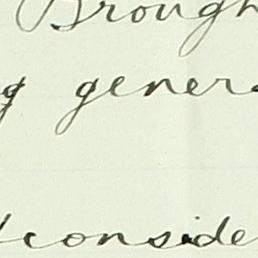 Brough
g genera
consider